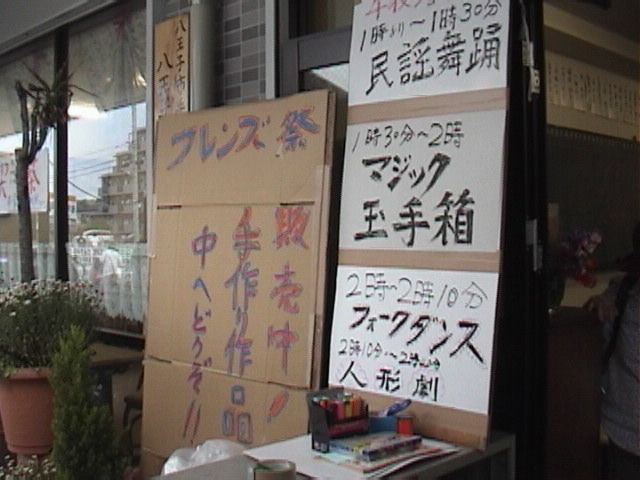 八王子市
フレンズ祭
販売中！
手作り作品
中へどうぞ！！
1時より～1時30分
民謡舞踊
1時30分～2時
マジック
玉手箱
2時～2時10分
フォークダンス
人形劇